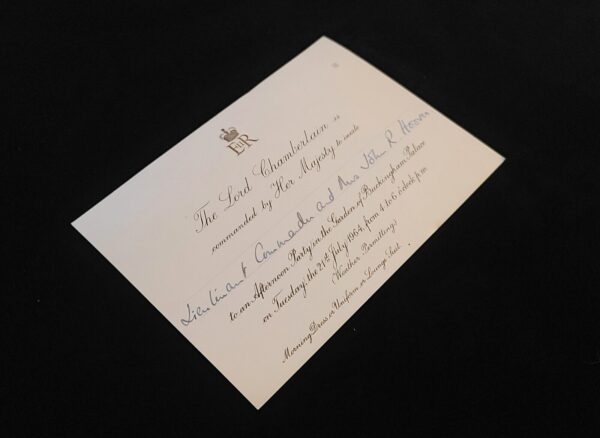 EIIR
The Lord Chamberlain is
commanded by Her Majesty to invite
Lieutenant Commander and Mrs John R. Hoover
to an Afternoon Party in the Garden of Buckingham Palace
on Tuesday, the 21st July 1964, from 4 to 6 o'clock p.m.
(Weather Permitting)
Morning Dress or Uniform or Lounge Suit.